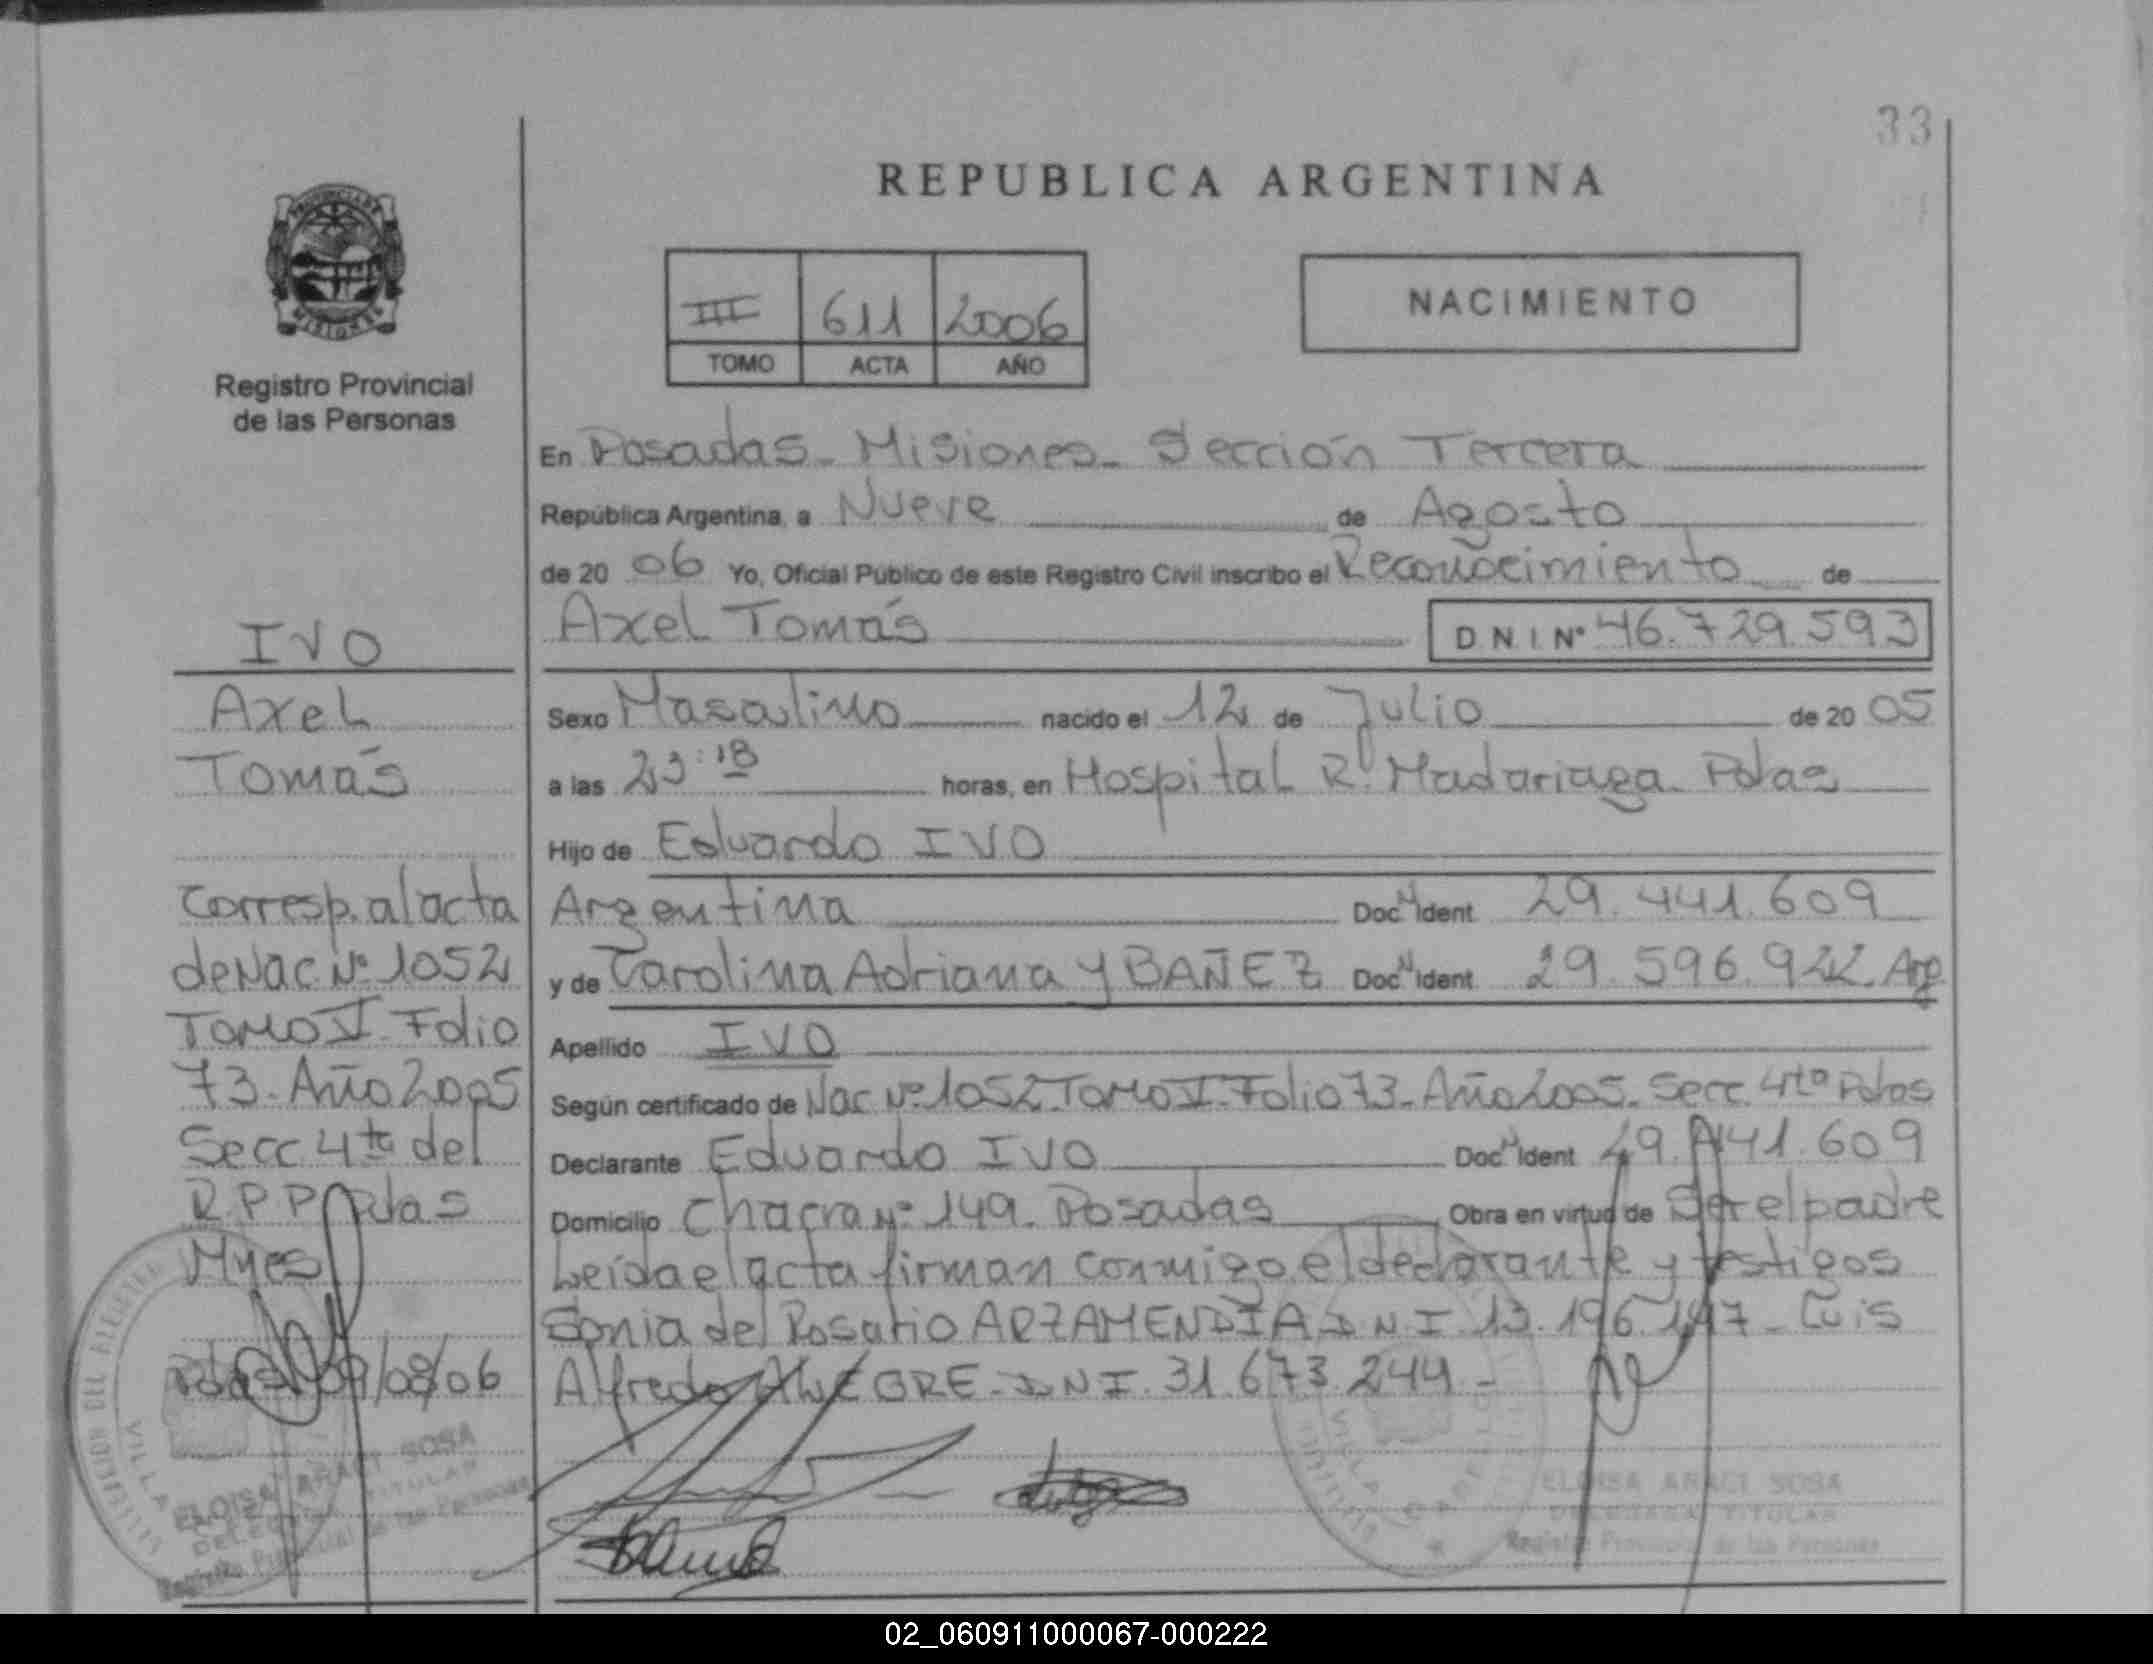 33
REPUBLICA ARGENTINA
PROVINCIA DE
MISIONES
Registro Provincial
de las Personas
III 611 2006
TOMO ACTA AÑO
NACIMIENTO
En Posadas - Misiones - Sección Tercera
República Argentina, a Nueve de Agosto
de 20 06 Yo, Oficial Público de este Registro Civil inscribo el Reconocimiento de
Axel Tomás D N I Nº 46.729.593
Sexo Masculino nacido el 12 de Julio de 20 05
a las 23:18 horas, en Hospital R. Madariaga Pdas
Hijo de Eduardo IVO
Argentina Doc. Ident 29.441.609
y de Carolina Adriana YBAÑEZ Doc. Ident 29.596.922 Arg
Apellido IVO
Según certificado de Nac Nº 1052 Tomo V Folio 73 - Año 2005 - Secc. 4ta Pdas
Declarante Eduardo IVO Doc. Ident 29.441.609
Domicilio Chacra Nº 149. Posadas Obra en virtud de Ser el padre
Leída el acta firman conmigo el declarante y testigos
Sonia del Rosario ARZAMENDIA D N I 13.196.147 - Luis
Alfredo ALEGRE - D N I . 31.673.244 -
IVO
Axel
Tomás
Corresp. al acta
de Nac. Nº 1052
Tomo V Folio
73 - Año 2005
Secc 4ta del
R.P.P Pdas
Mnes
Pdas 09/08/06
ELOISA ARACI SOSA
DELEGADA TITULAR
Registro Provincial de las Personas
ELOISA ARACI SOSA
DELEGADA TITULAR
Registro Provincial de las Personas
02_060911000067-000222